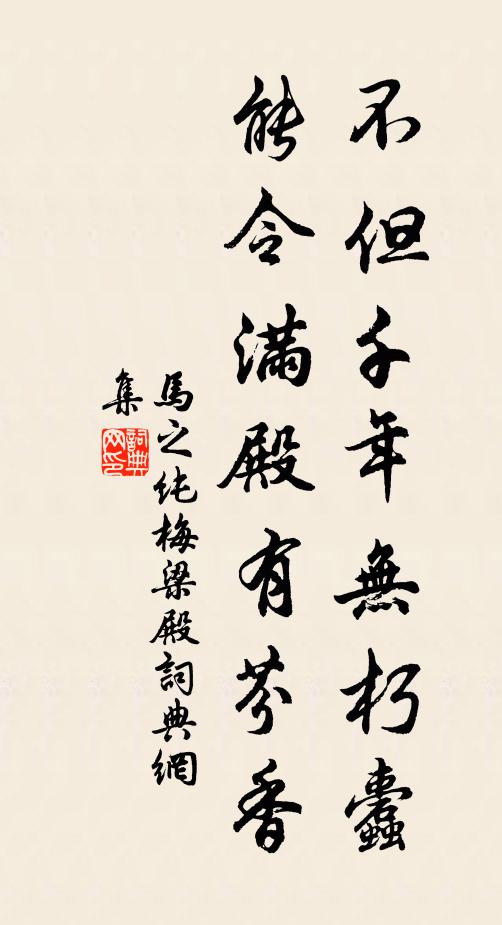 不但千年無朽蠹
能令滿殿有芬香
馬之純梅梁殿詞典網
集
詞典
网印